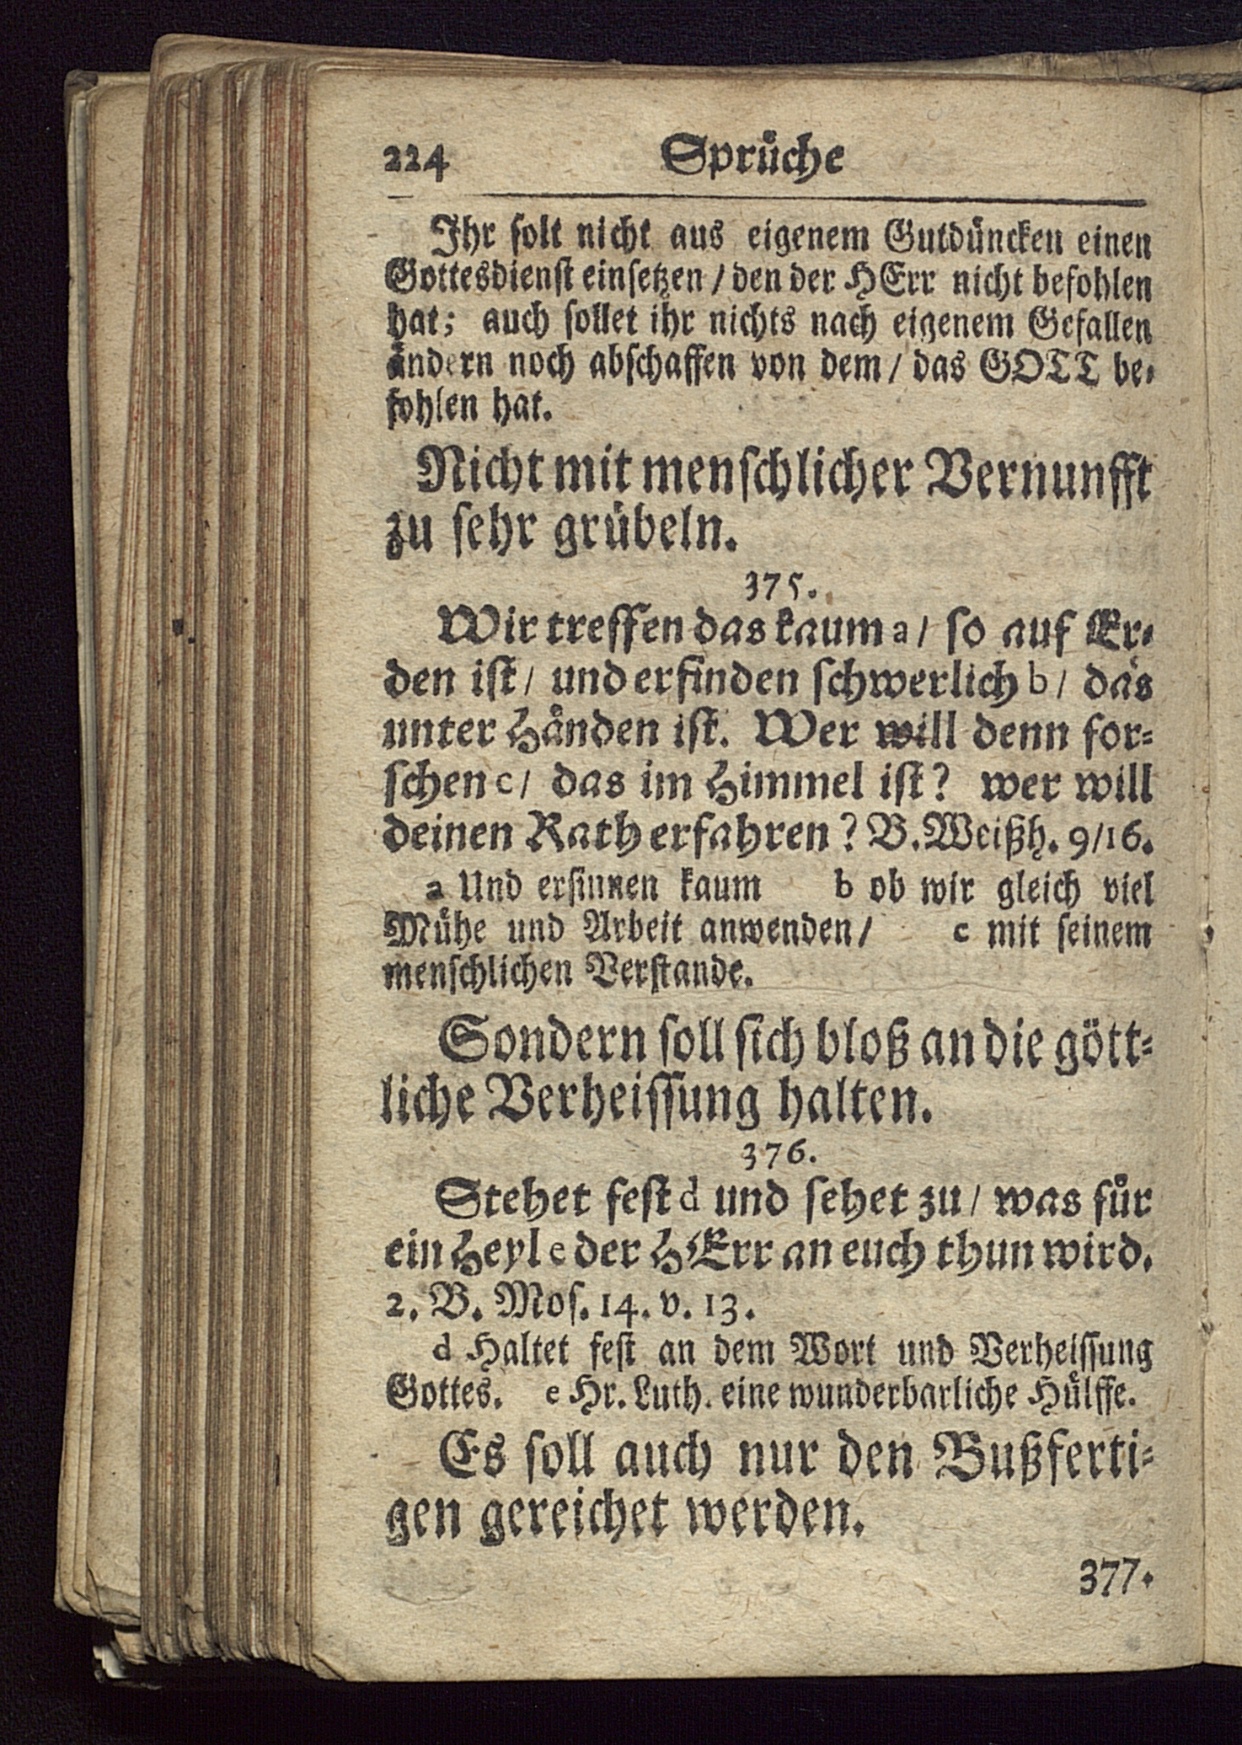 224 Sprüche
Ihr solt nicht aus eigenem Gutdüncken einen
Gottesdienst einsetzen / den der HErr nicht befohlen
hat; auch sollet ihr nichts nach eigenem Gefallen
ändern noch abschaffen von dem / das GOTT be-
fohlen hat.
Nicht mit menschlicher Vernunfft
zu sehr grübeln.
375.
Wir treffen das kaum a / so auf Er-
den ist / und erfinden schwerlich b / das
unter Händen ist. Wer will denn for-
schen c / das im Himmel ist? wer will
deinen Rath erfahren? B. Weißh. 9/16.
a Und ersinnen kaum b ob wir gleich viel
Mühe und Arbeit anwenden / c mit seinem
menschlichen Verstande.
Sondern soll sich bloß an die gött-
liche Verheissung halten.
376.
Stehet fest d und sehet zu / was für
ein Heyl e der HErr an euch thun wird.
2. B. Mos. 14. v. 13.
d Haltet fest an dem Wort und Verheissung
Gottes. e Hr. Luth. eine wunderbarliche Hülffe.
Es soll auch nur den Bußferti-
gen gereichet werden.
377.